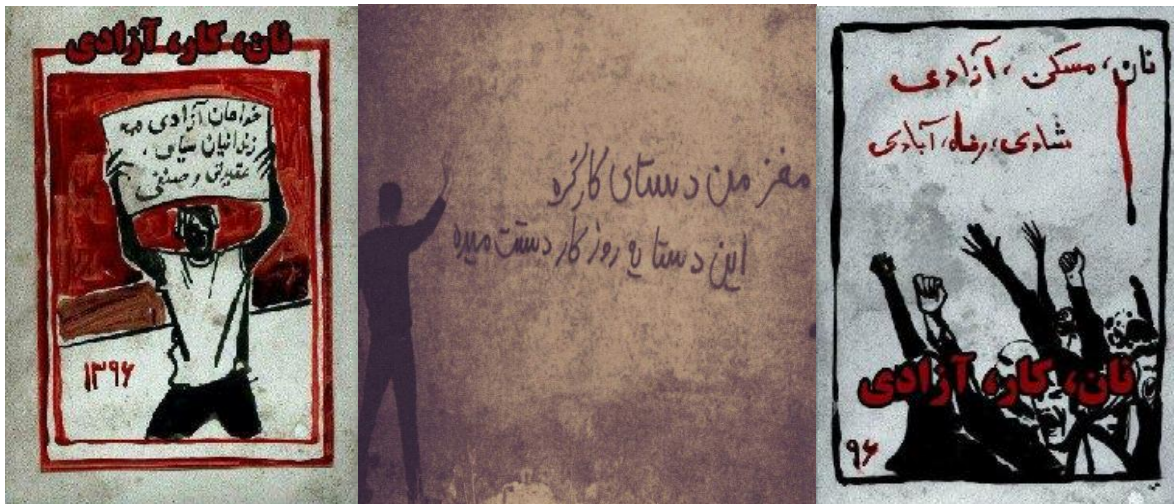 نان، کار، آزادی
خواهان آزادی همه
زندانیان سیاسی،
عقیدتی و صنفی
۱۳۹۶
مغز من دستای کارگره
این دستا یه روز کار دستت میده
نان، مسکن، آزادی
شادی، رفاه، آبادی
نان، کار، آزادی
۹۶